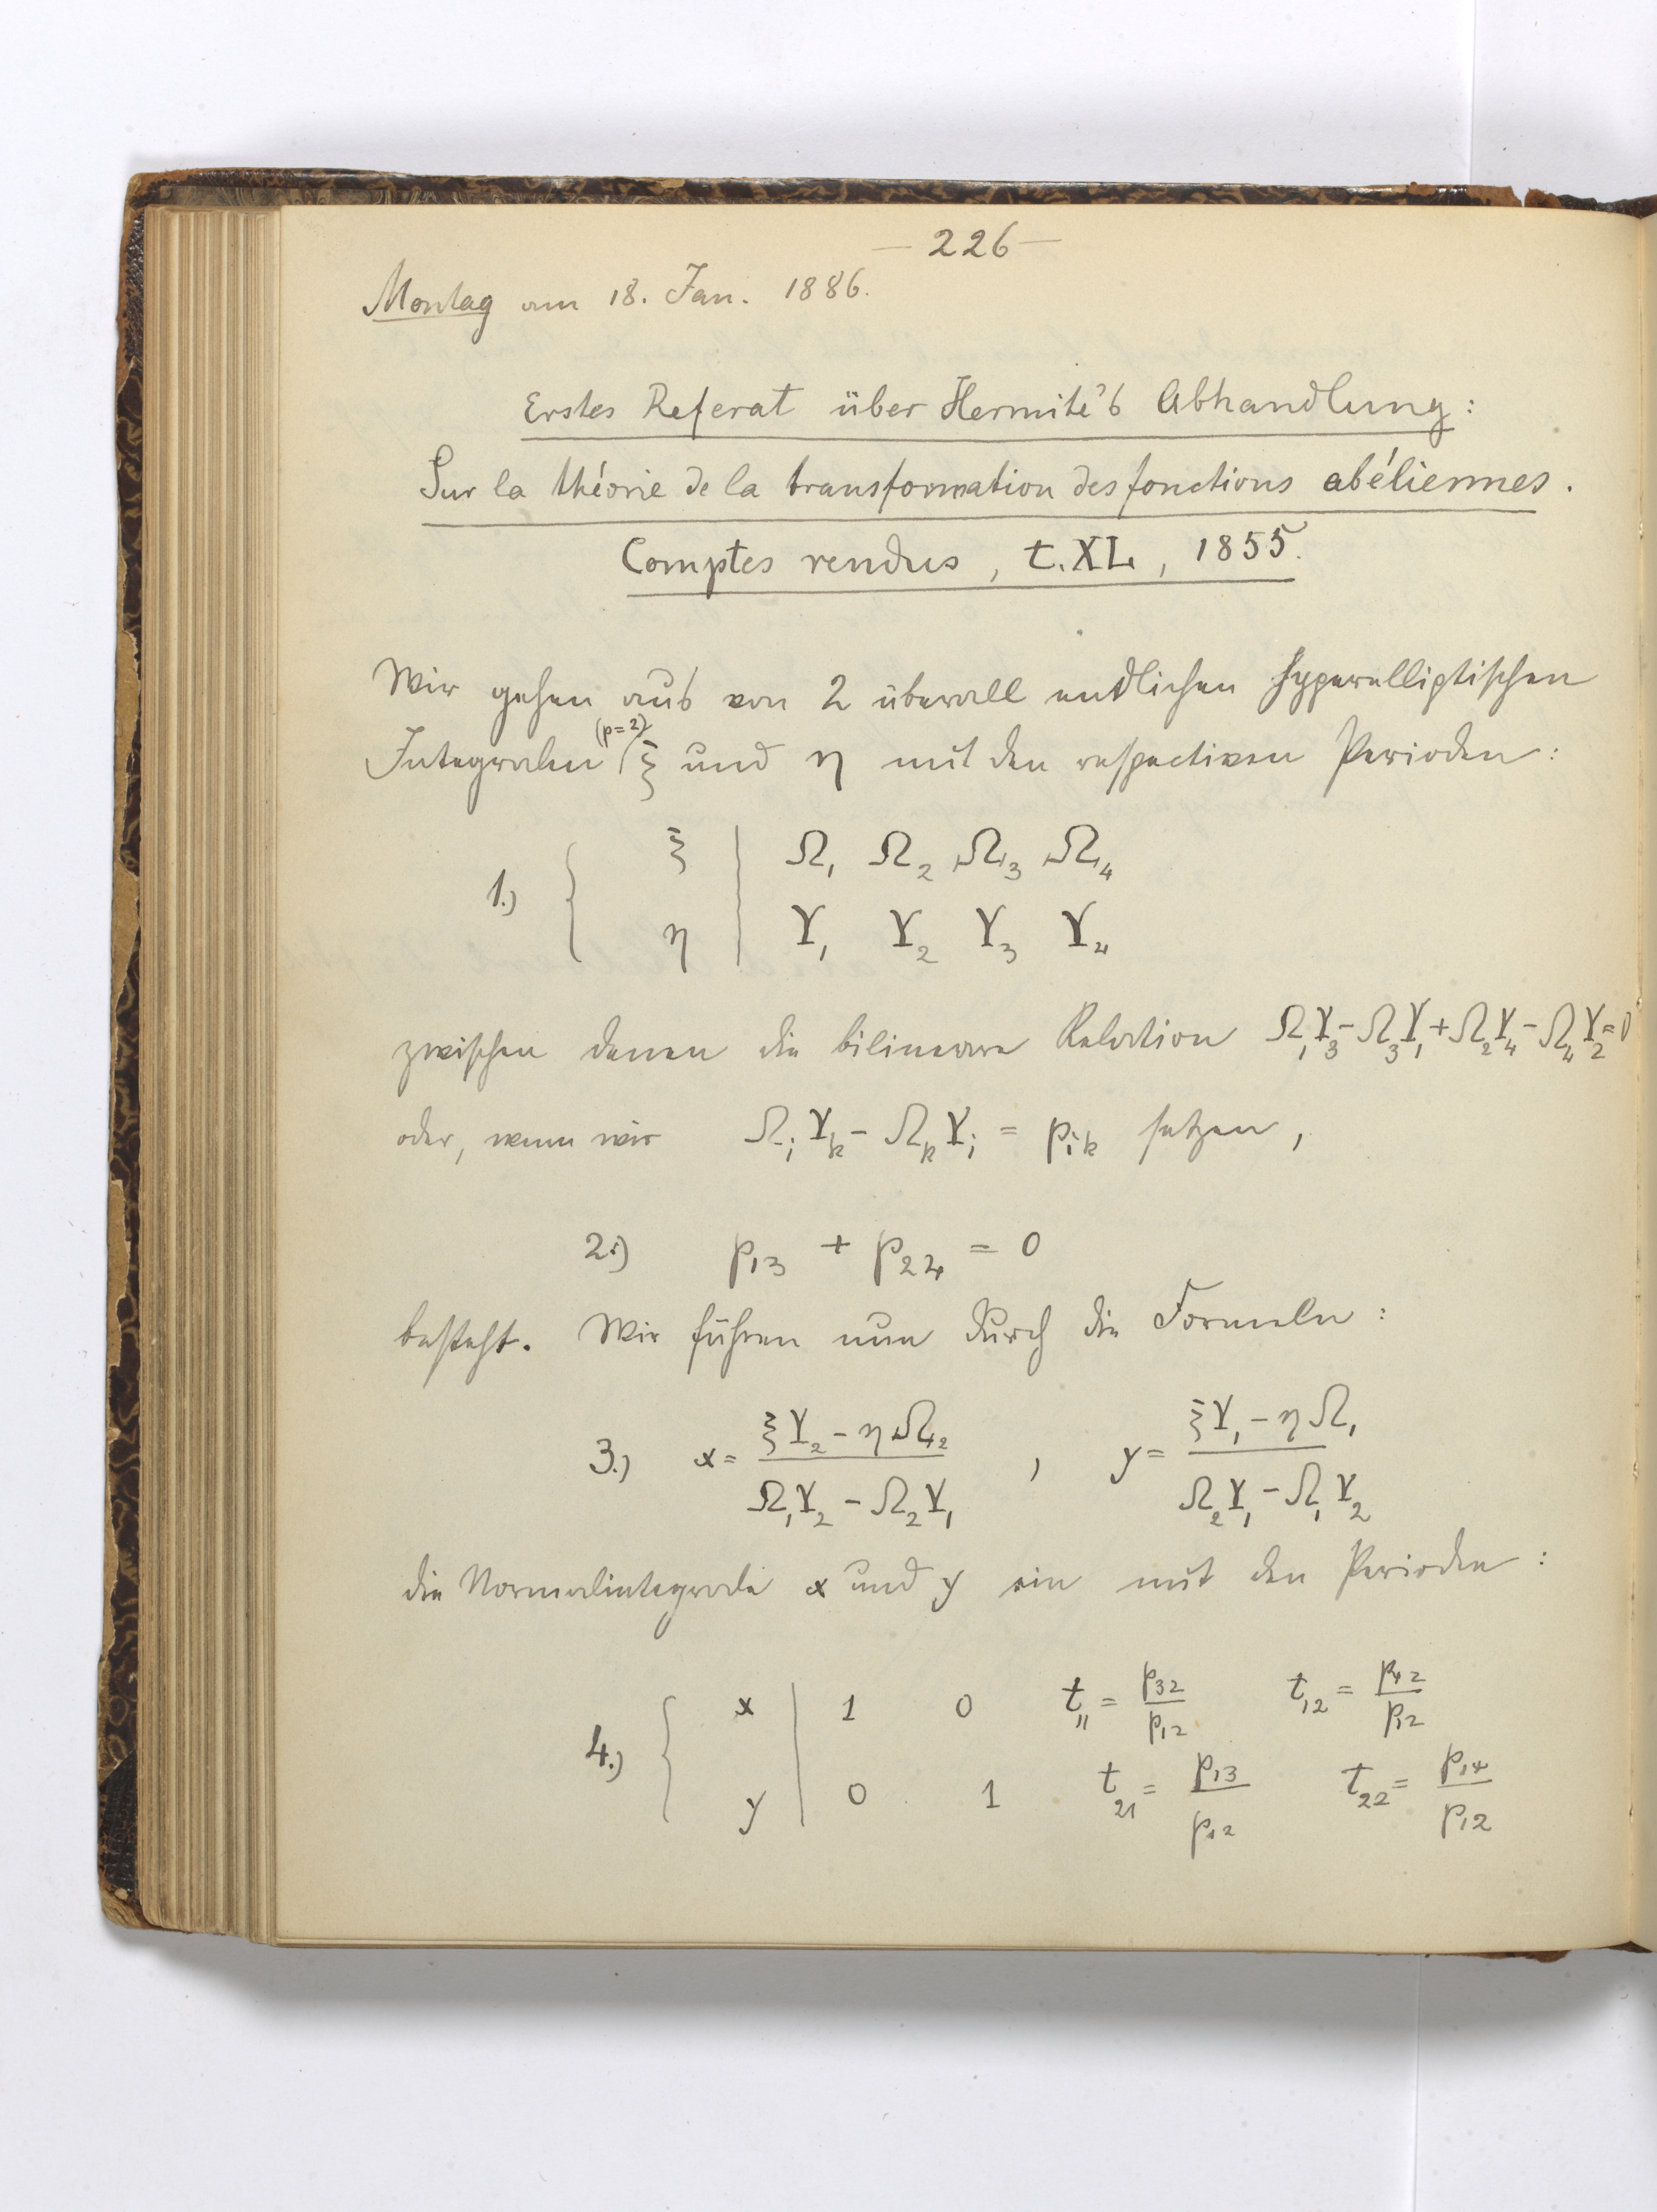 — 226 —
Montag am 18. Jan. 1886.
Erstes Referat über Hermite's Abhandlung:
Sur la théorie de la transformation des fonctions abéliennes.
Comptes rendus, t. XL, 1855.
Wir gehen aus von 2 überall endlichen hyperelliptischen
Integralen (p=2) ξ und η mit den respectiven Perioden:
1.) { ξ | Ω₁ Ω₂ Ω₃ Ω₄
η | Υ₁ Υ₂ Υ₃ Υ₄
zwischen denen die bilineare Relation Ω₁Υ₃ − Ω₃Υ₁ + Ω₂Υ₄ − Ω₄Υ₂ = 0
oder, wenn wir Ω_i Υ_k − Ω_k Υ_i = p_ik setzen,
2.) p₁₃ + p₂₄ = 0
besteht. Wir führen nun durch die Formeln:
3.) x = (ξΥ₂ − ηΩ₂)/(Ω₁Υ₂ − Ω₂Υ₁) , y = (ξΥ₁ − ηΩ₁)/(Ω₂Υ₁ − Ω₁Υ₂)
die Normalintegrale x und y ein mit den Perioden:
4.) { x | 1 0 t₁₁ = p₃₂/p₁₂ t₁₂ = p₄₂/p₁₂
y | 0 1 t₂₁ = p₁₃/p₁₂ t₂₂ = p₁₄/p₁₂